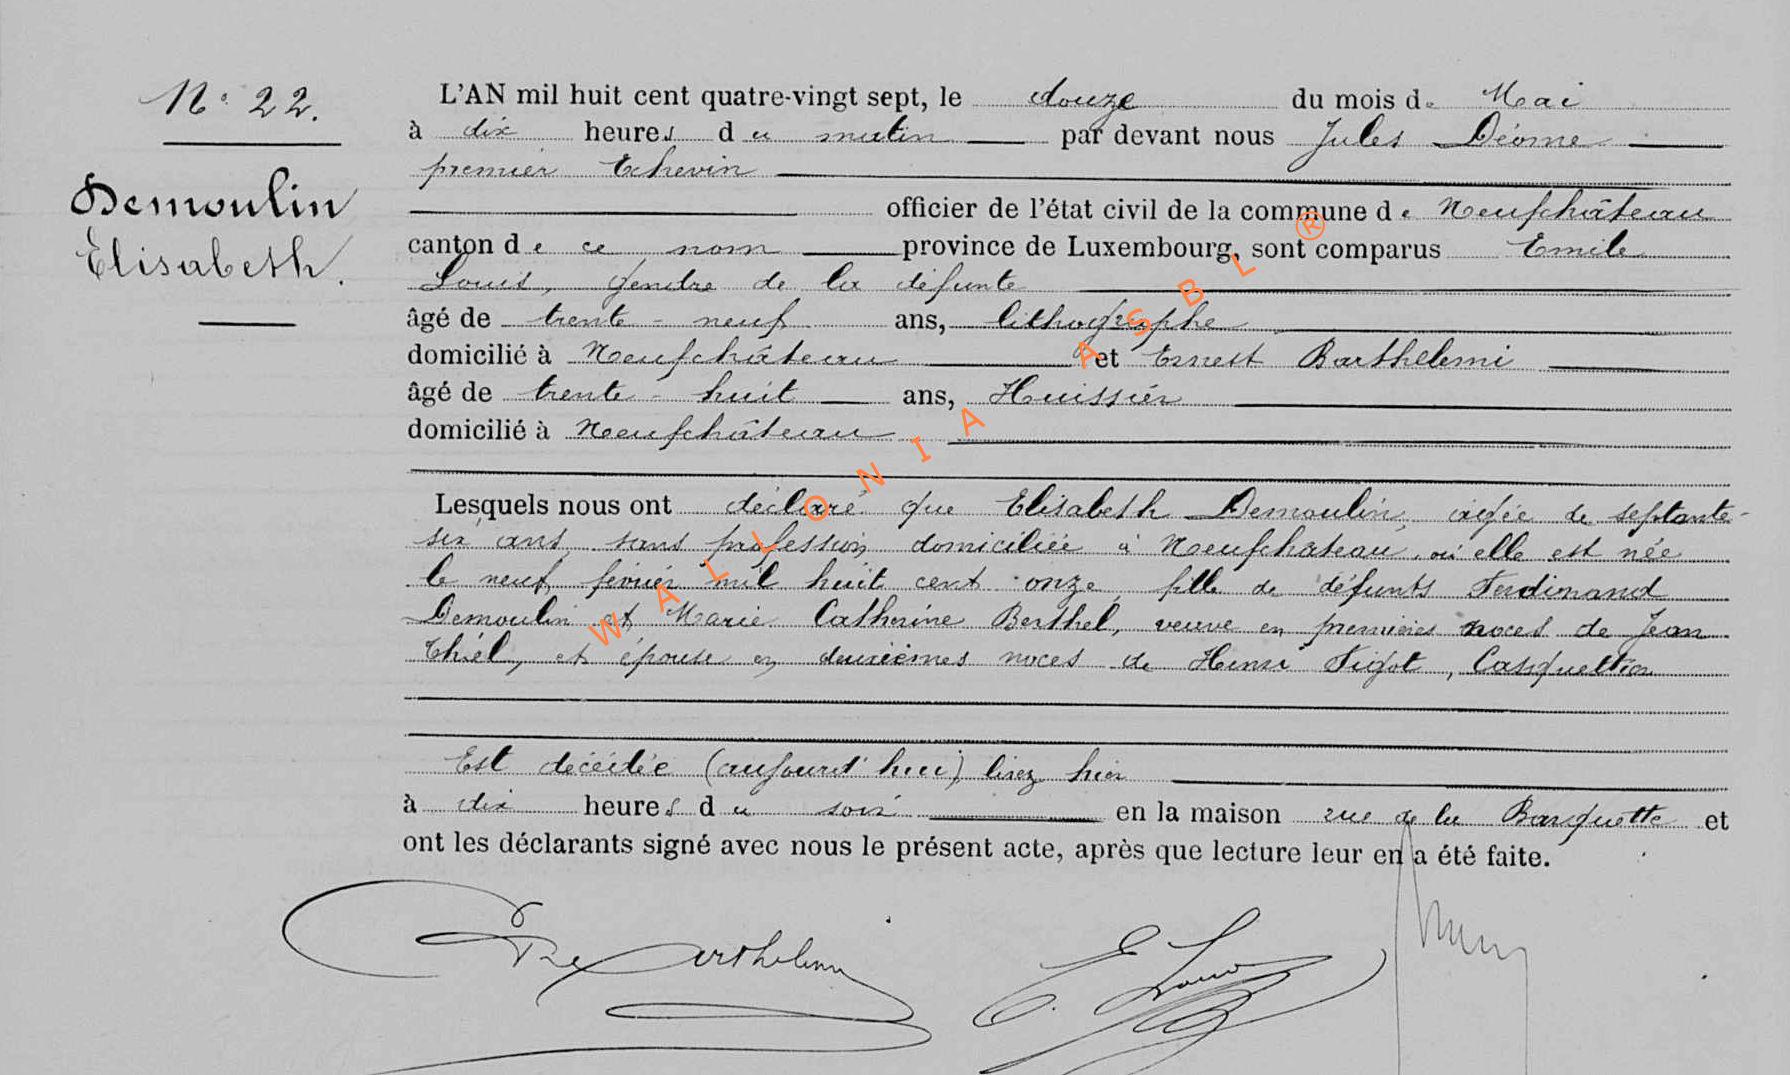 N° 22.
Demoulin
Elisabeth.
L'AN mil huit cent quatre-vingt sept, le douze du mois de Mai
à dix heures du matin par devant nous Jules Déome
premier Echevin
officier de l'état civil de la commune de Neufchâteau
canton de ce nom province de Luxembourg, sont comparus Emile
Louis, gendre de la défunte
âgé de trente-neuf ans, lithographe
domicilié à Neufchâteau et Ernest Barthelemi
âgé de trente-huit ans, Huissier
domicilié à Neufchâteau
Lesquels nous ont déclaré que Elisabeth Demoulin, agée de septante-
six ans, sans profession domiciliée à Neufchateau, où elle est née
le neuf février mil huit cent onze, fille de défunts Ferdinand
Demoulin et Marie Catherine Berthel, veuve en premières noces de Jean
Thiél, et épouse en deuxièmes noces de Henri Figot, Casquettier
Est décédée (aujourd'hui) lisez hier
à dix heures du soir en la maison rue de la Barquette et
ont les déclarants signé avec nous le présent acte, après que lecture leur en a été faite.
Barthelemi
E. Louis
WALLONIA ASBL ®